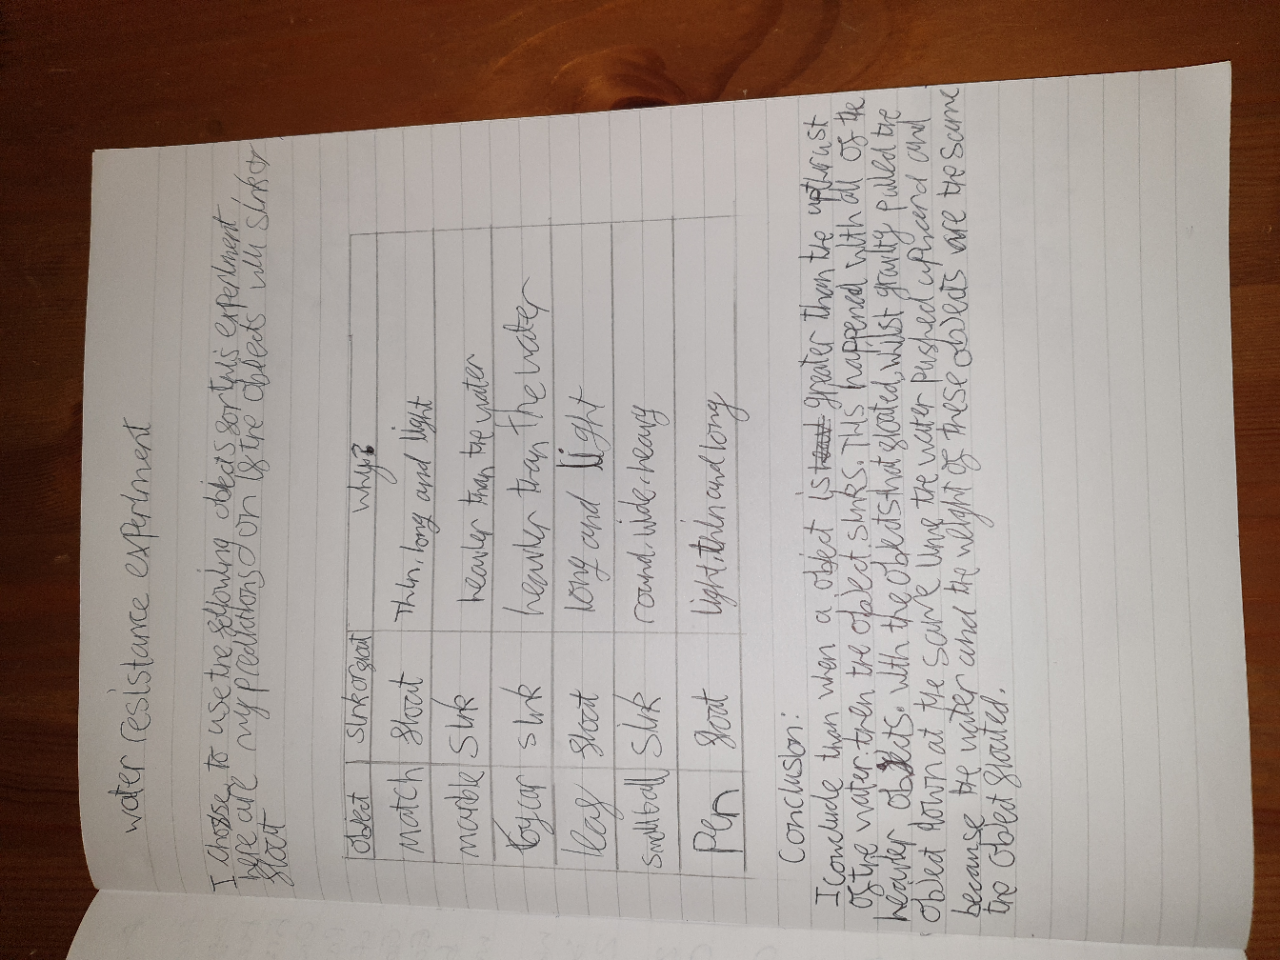 water resistance experiment
I choose to use the following objects for this experiment
here are my predictions on if the objects will sink or
float
Object Sink or float Why?
Match float Thin, long and light
marble Sink heavier than the water
toy car sink heavier than The water
leaf float long and light
small ball Sink round. wide. heavy
Pen float light, thin and long
Conclusion:
I conclude than when a object is greater than the upthrust
of the water then the object sinks. This happened with all of the
heavier objects. With the objects that floated, whilst gravity pulled the
object down at the same time the water pushed up and and
because the water and the weight of these objects are the same
the object floated.